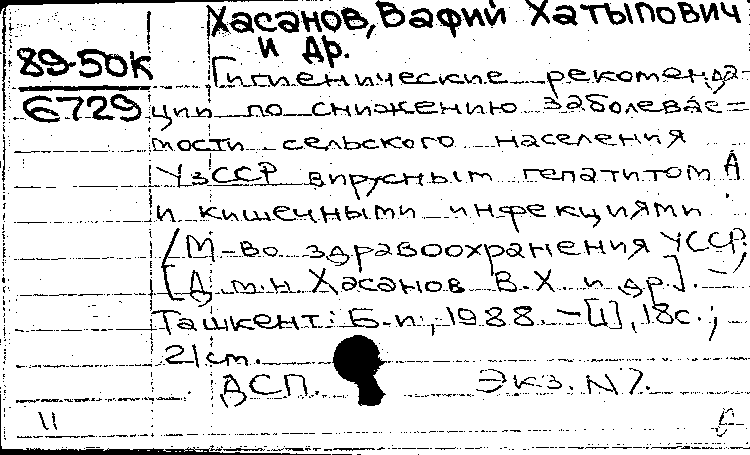 Хасанов, Вафий Хатыпович
и др.
89-50К
6729
Гигиенические рекоменда-
ции по снижению заболевае=
мости сельского населения
УзССР вирусным гепатитом А
и кишечными инфекциями
/М-во здравоохранения УССР;
[Д.м.н. Хасанов В.Х. и др]. -
Ташкент: Б.и., 1988. - [1], 18с.;
21 см.
ДСП. Экз. N 7.
11